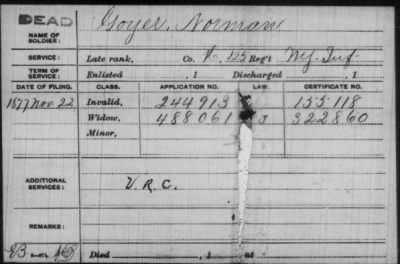 DEAD
NAME OF SOLDIER: Goyer, Norman
SERVICE: Late rank, Co. K, 125 Reg't Ny. Inf
TERM OF SERVICE: Enlisted , 1 Discharged , 1
DATE OF FILING. CLASS. APPLICATION NO. LAW. CERTIFICATE NO.
1877 Nov. 22 Invalid, 244913 155118
Widow, 488061 322860
Minor,
ADDITIONAL SERVICES: V. R. C.
REMARKS:
Died , 1 , at